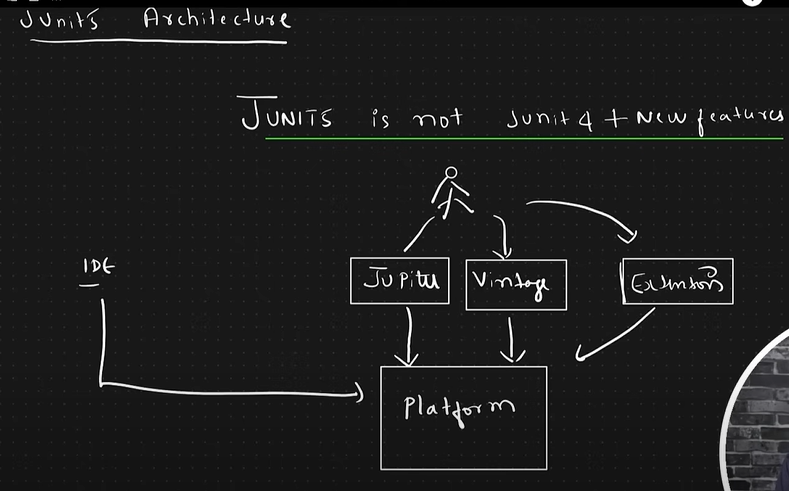 JUnit5 Architecture
JUNIT5 is not Junit 4 + New features
IDE
Jupiter
Vintage
Extensions
Platform